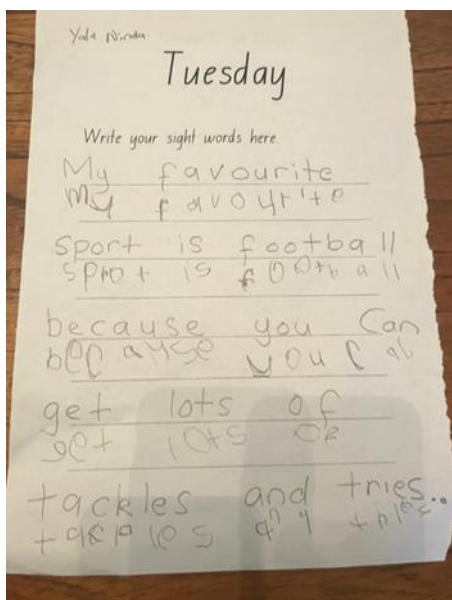 Yala Ninda
Tuesday
Write your sight words here.
My favourite
my favourite
sport is football
sprot is football
because you Can
because you Can
get lots of
get lots of
tackles and tries..
tackles